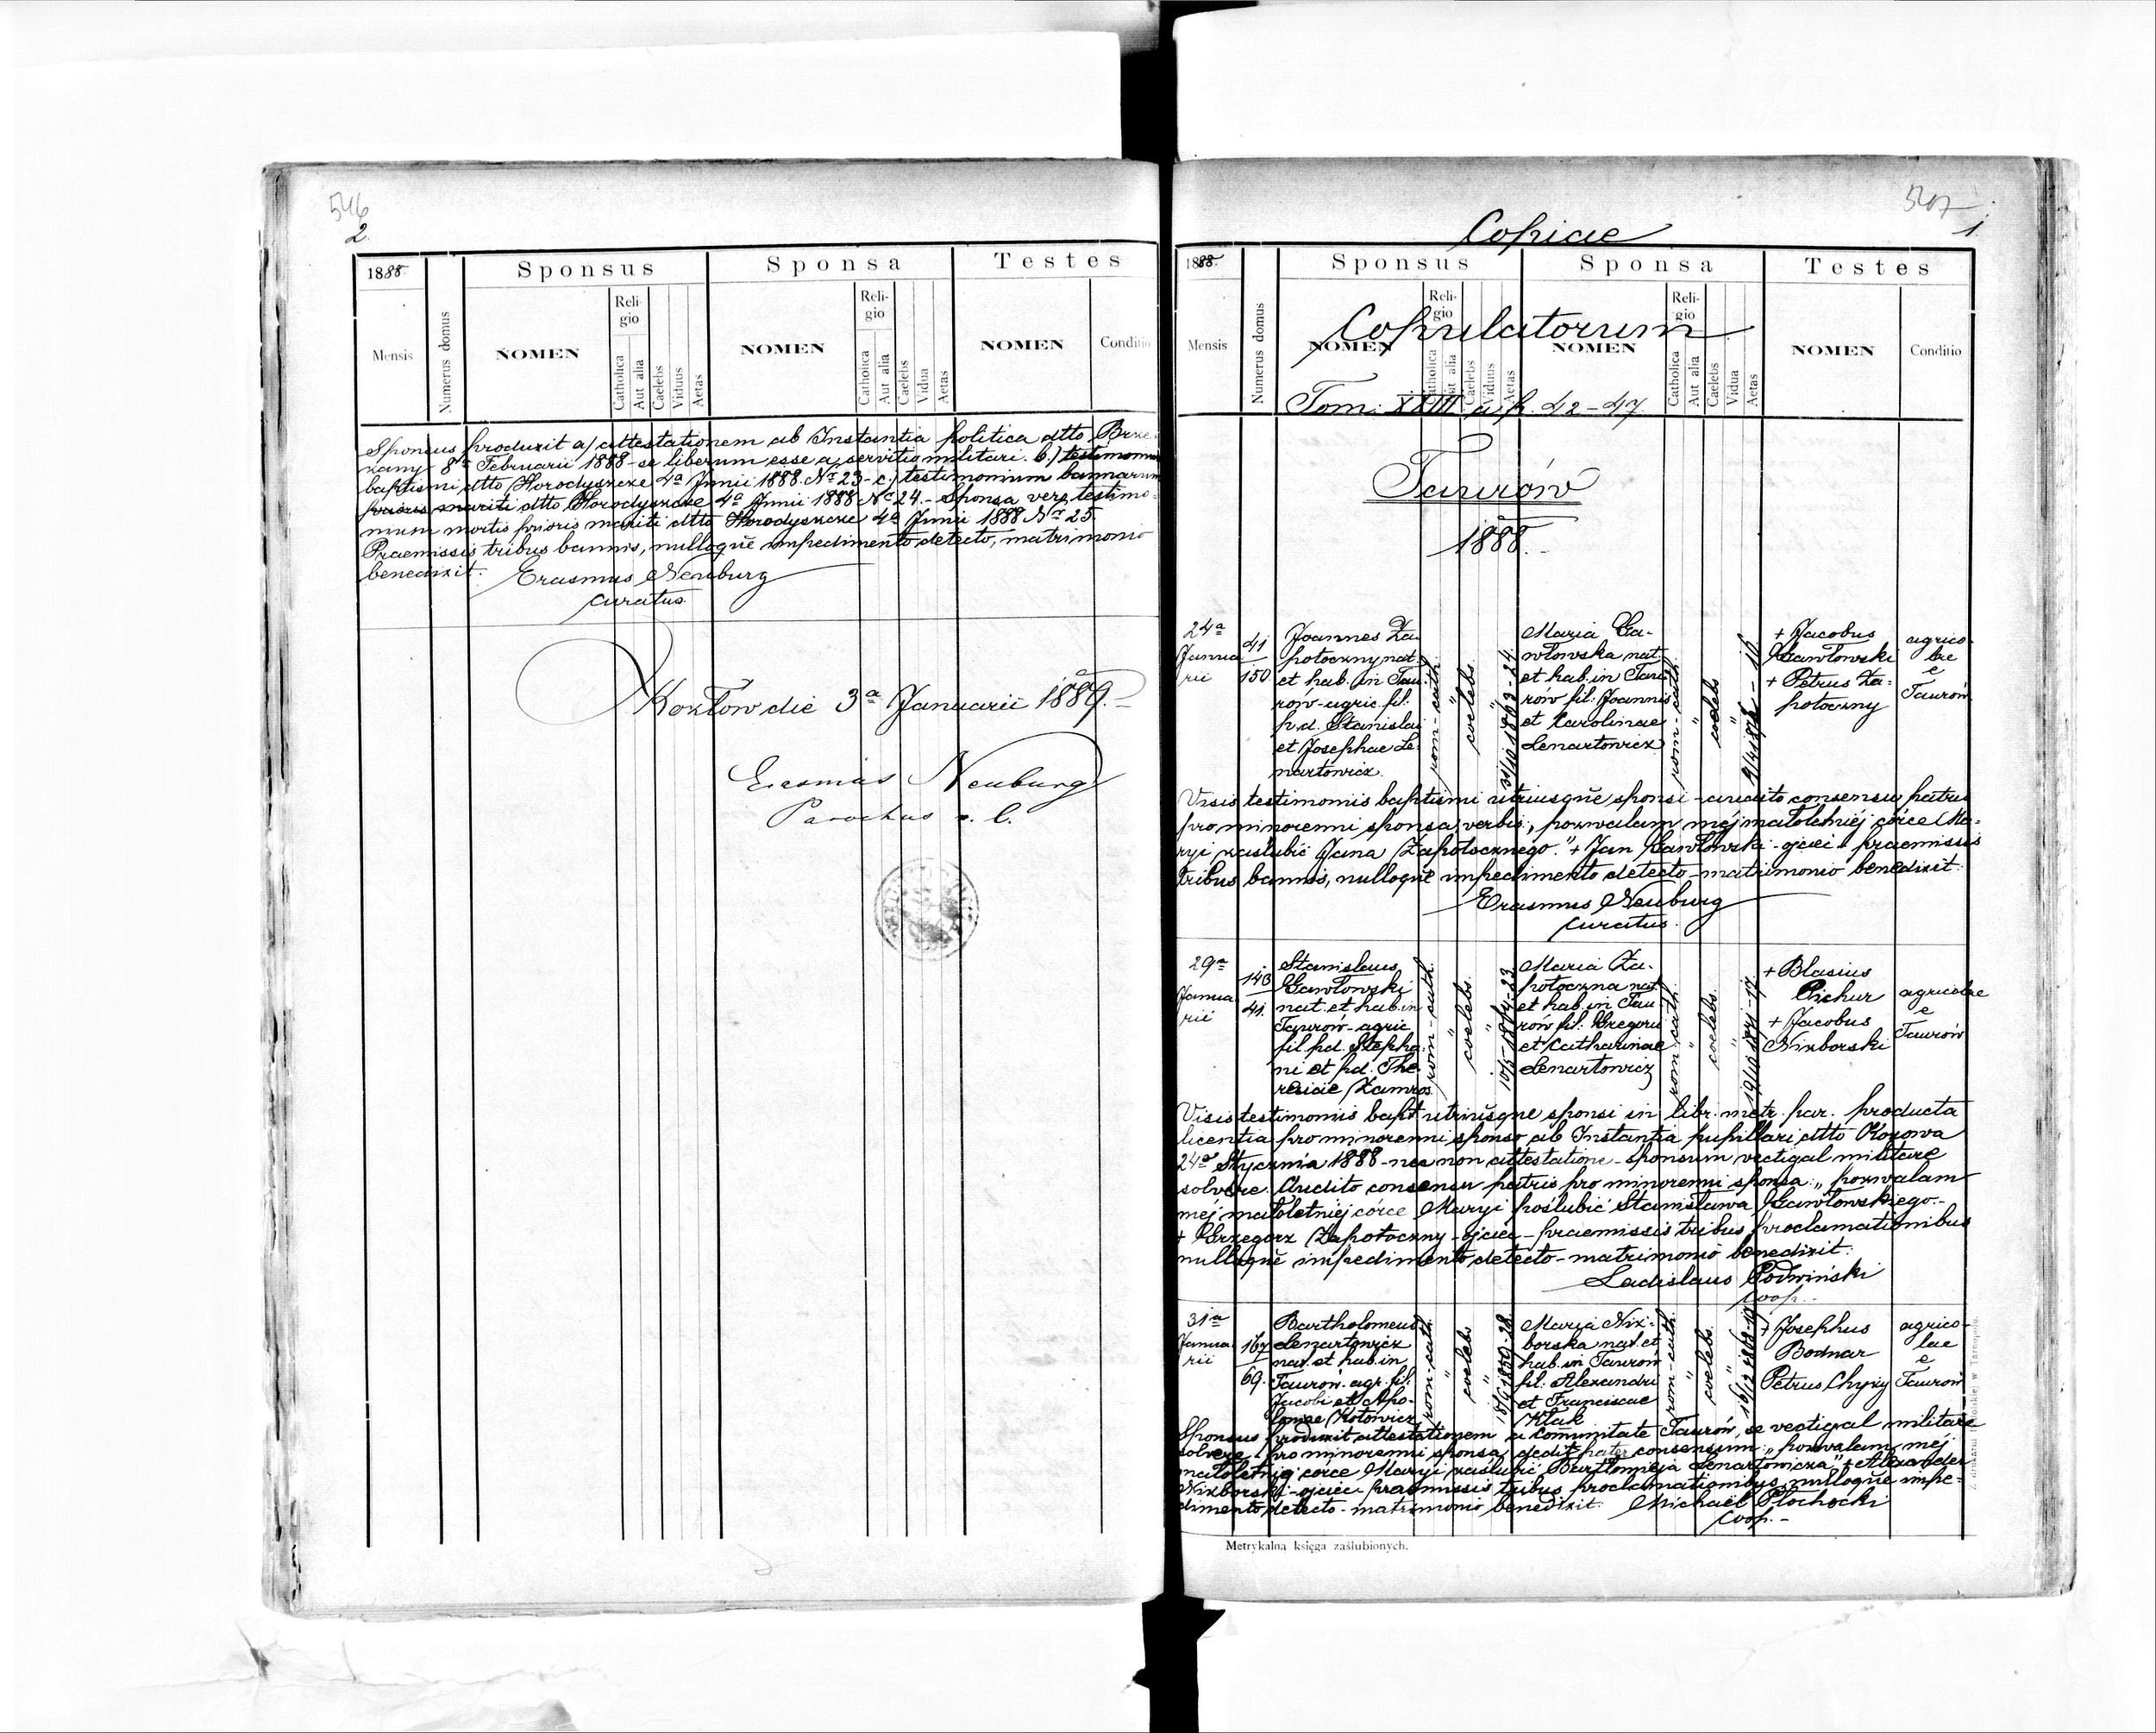 546
2
1888.
Sponsus
Sponsa
Testes
Mensis
Numerus domus
NOMEN
Religio
Catholica
Aut alia
Caelebs
Viduus
Aetas
NOMEN
Religio
Catholica
Aut alia
Caelebs
Vidua
Aetas
NOMEN
Conditio
Sponsus produxit a) attestationem ab Instantia politica dtto Brze-
zany 8a Februarii 1888 - se liberum esse a servitio militari. b.) testimoni
baptismi dtto Horodyszcze 4a Junii 1888 Nr 23 - c.) testimonium bannorum
prioris mariti dtto Horodyszcze 4a Junii 1888 Nr 24. - Sponsa vero testimo-
nium mortis prioris mariti dtto Horodyszcze 4a Junii 1888 Nr 25.
Praemissis tribus bannis, nulloque impedimento detecto, matrimonio
benedixit.
Erasmus Neuburg
curatus.
Kozłow die 3a Januarii 1889.
Erasmus Neuburg
Parochus r. l.
547
1.
Copiae
1888.
Sponsus
Sponsa
Testes
Mensis
Numerus domus
NOMEN
Religio
Catholica
Aut alia
Caelebs
Viduus
Aetas
NOMEN
Religio
Catholica
Aut alia
Caelebs
Vidua
Aetas
NOMEN
Conditio
Copulatorum
Tom. XXIII a p. 42-47
Taurów
1888.
24a
Janua
rii
41
150
Joannes Za-
potoczny nat.
et hab. in Tau-
rów - agric. fil.
p. d. Stanislai
et Josephae Le-
nartowicz.
rom-cath.
coelebs
Maria Ga-
włowska nat.
et hab. in Tau-
rów fil. Joannis
et Carolinae
Lenartowicz
rom-cath.
coelebs
+ Jacobus
Gawłowski
+ Petrus Za-
potoczny
agrico-
lae
e
Taurów
Visis testimoniis baptismi utriusque sponsi - audito consensu patris
pro minorenni sponsa verbis: „pozwalam mej małoletniéj córce Ma-
ryi zaślubić Jana Zapotocznego." + Jan Gawłowski - ojciec - praemissis
tribus bannis, nulloque impedimento detecto - matrimonio benedixit.
Erasmus Neuburg
curatus.
29a
Janua
rii
143
41.
Stanislaus
Gawłowski
nat. et hab. in
Taurów - agric.
fil. pd. Stepha-
ni et pd. The-
resiae Zamros
rom-cath.
coelebs
10/5 1864-23
Maria Za-
potoczna nat.
et hab. in Tau
rów fil. Gregorii
et Catharinae
Lenartowicz
rom-cath.
coelebs.
+ Blasius
Pichur
+ Jacobus
Nixborski
agricolae
e
Taurów
Visis testimoniis bapt. utriusque sponsi in libr. metr. par. producta
licentia pro minorenni sponso ab Instantia pupillari dtto Kozowa
24a Stycznia 1888 - nec non attestatione - sponsum vectigal militare
solvere. Audito consensu patris pro minorenni sponsa: „pozwalam
méj małoletniéj córce Maryi poślubić Stanisława Gawłowskiego.-
+ Grzegorz Zapotoczny - ojciec - praemissis tribus proclamationibus
nulloque impedimento detecto - matrimonio benedixit.
Ladislaus Podwiński
coop.-
31a
Janua-
rii
167
69.
Bartholomeus
Lenartowicz
nat. et hab. in
Taurów - agr. fil.
Jacobi et Apo-
loniae Kotowicz
rom-cath.
coelebs
Marya Nix-
borska nat. et
hab. in Taurów
fil. Alexandri
et Franciscae
Kłak
rom-cath.
coelebs.
+ Josephus
Bodnar
Petrus Chyzy
agrico-
lae
e
Taurów
Sponsus produxit attestationem a comunitate Taurów, se vectigal militare
solvere, pro minorenni sponsa, dedit pater consensum: „pozwalam méj
małoletniej córce Maryi zaślubić Bartłomieja Lenartowicza" + Alexander
Nixborski - ojciec praemissis tribus proclamationibus, nulloque impe-
dimento detecto - matrimonio benedixit. Michaël Płochocki
coop.-
Metrykalna księga zaślubionych.